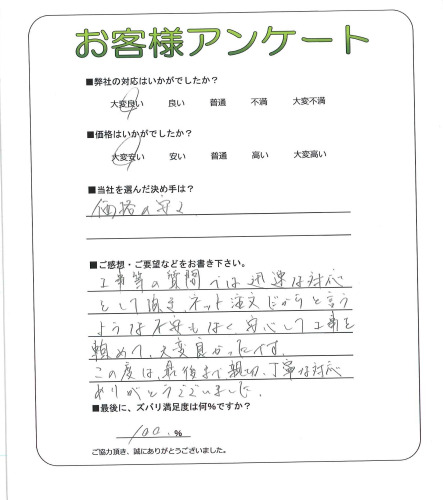 お客様アンケート
■弊社の対応はいかがでしたか？
大変良い 良い 普通 不満 大変不満
■価格はいかがでしたか？
大変安い 安い 普通 高い 大変高い
■当社を選んだ決め手は？
価格の安さ
■ご感想・ご要望などをお書き下さい。
工事等の質問では迅速な対応
をして頂き、ネット注文だからと言う
ような不安もなく、安心して工事を
頼めて、大変良かったです。
この度は、最後まで親切、丁寧な対応
ありがとうございました。
■最後に、ズバリ満足度は何%ですか？
100.%
ご協力頂き、誠にありがとうございました。